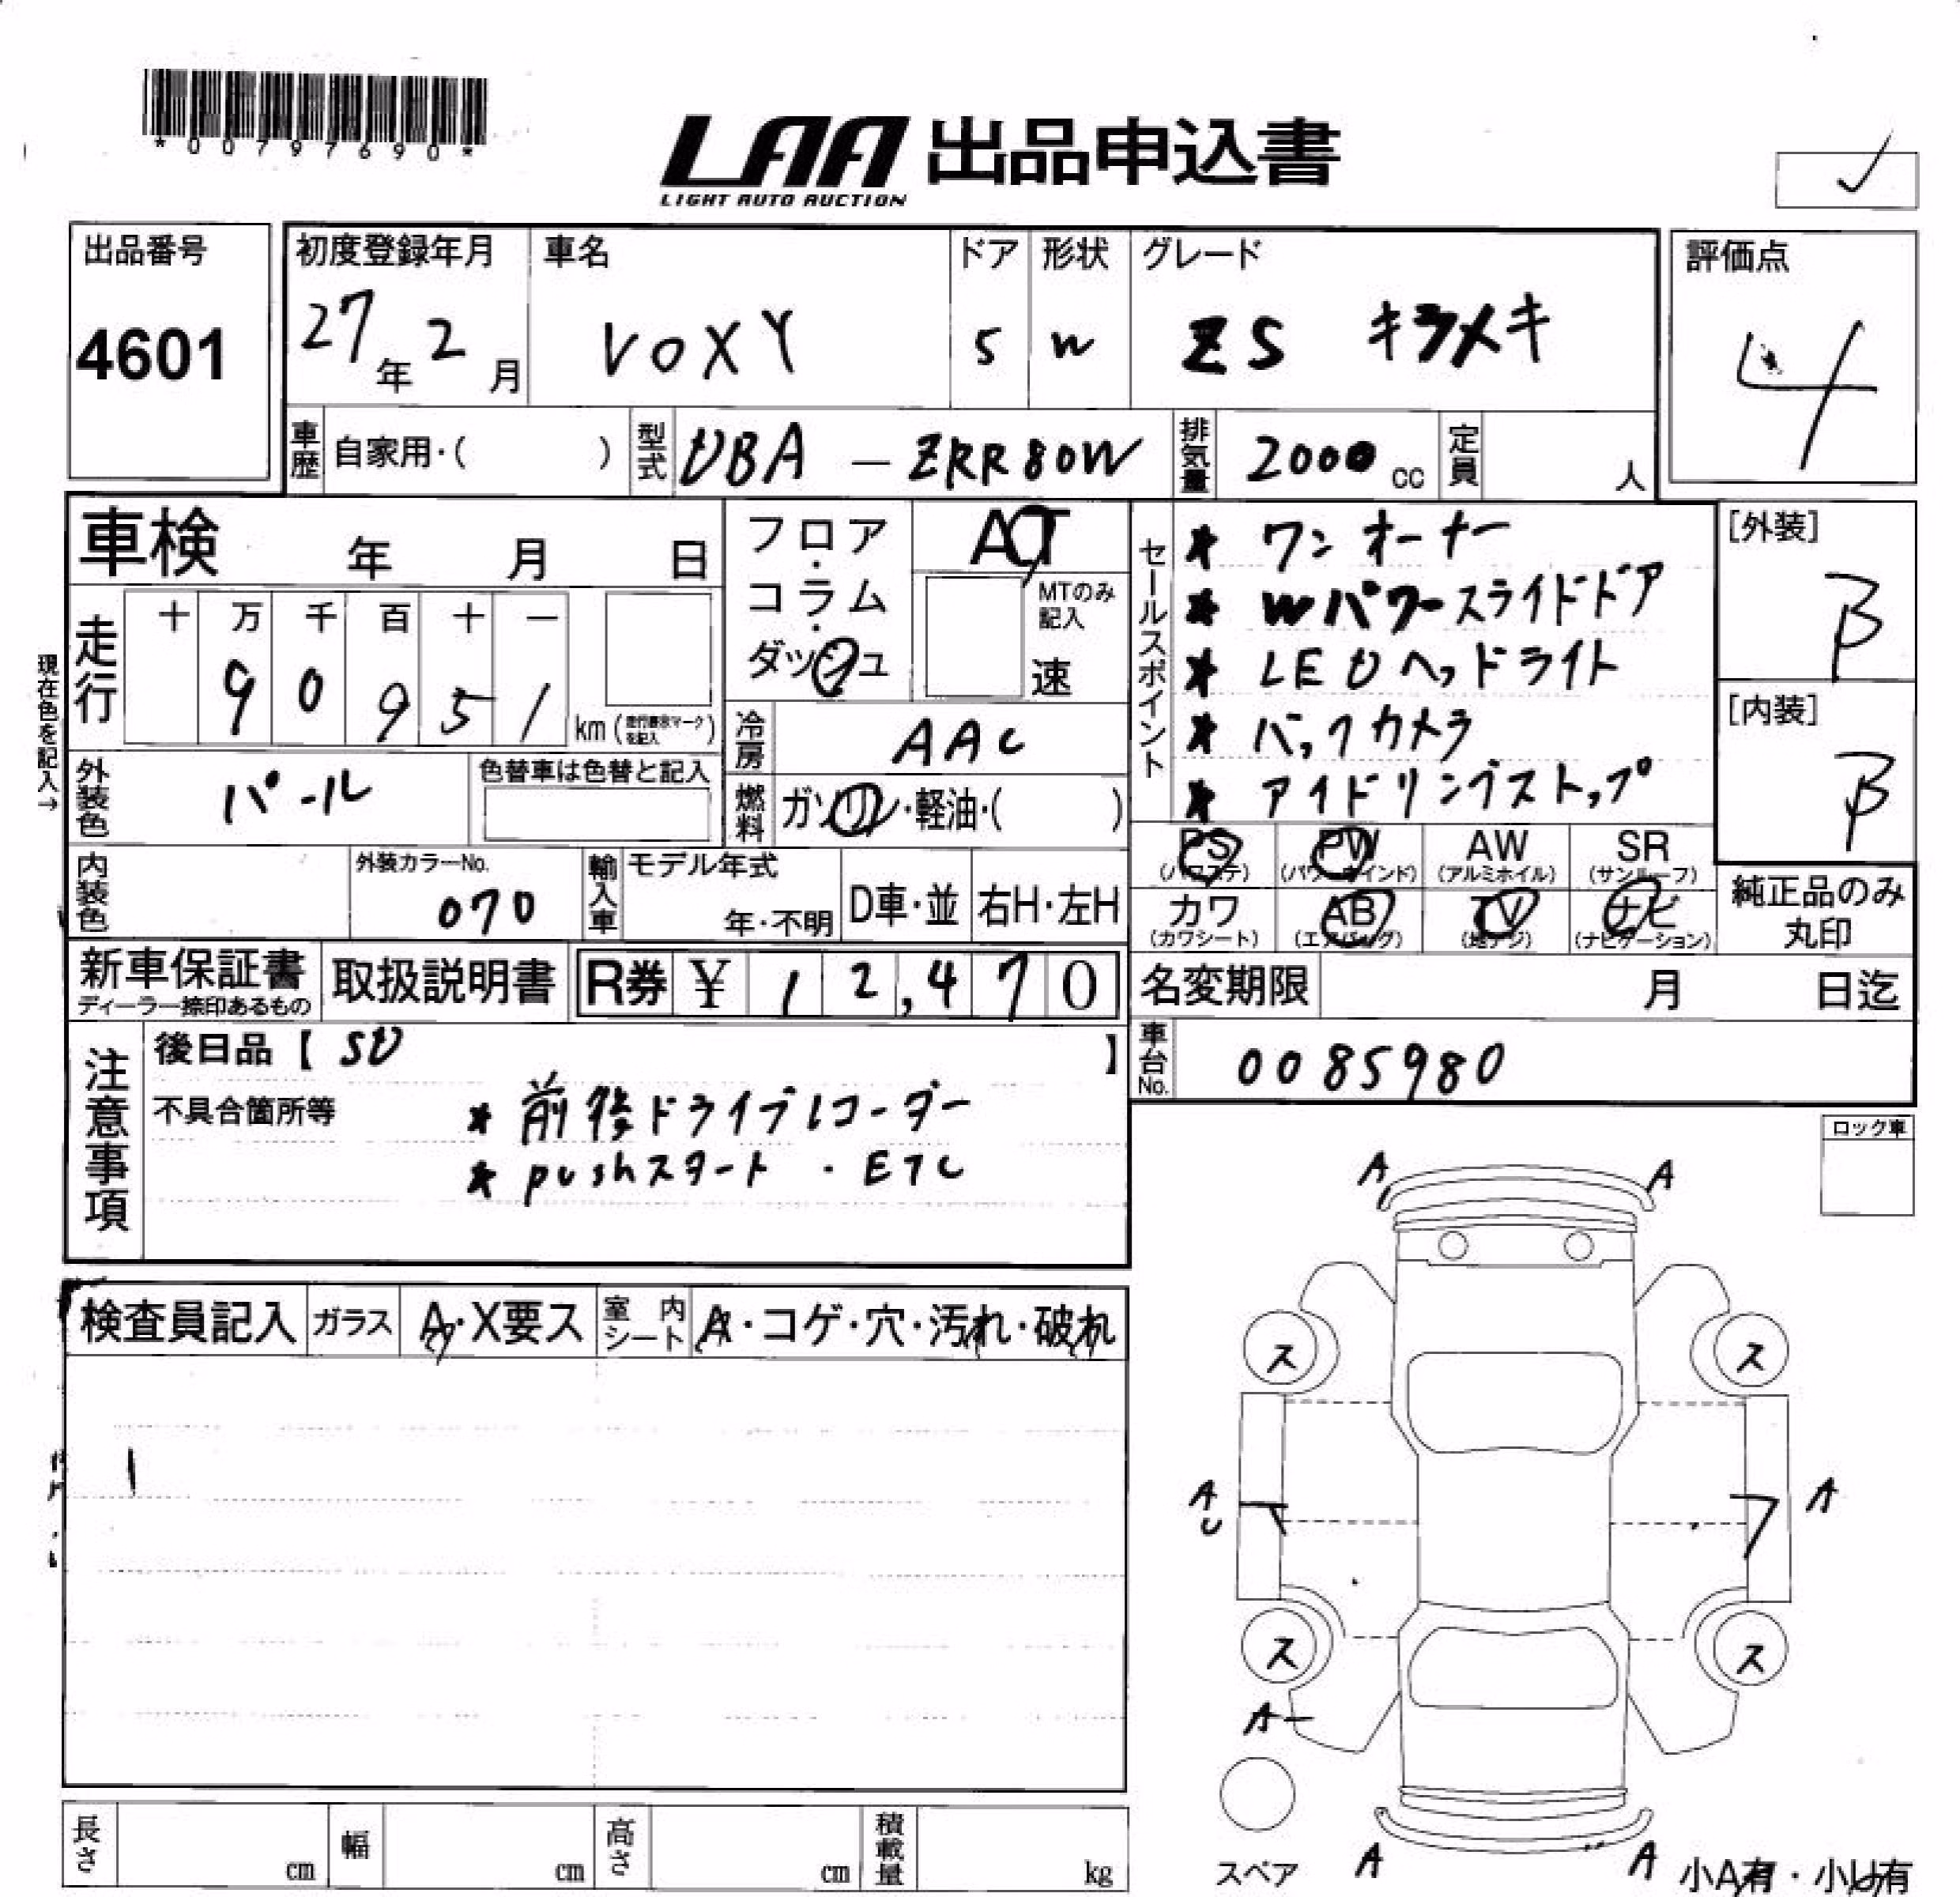 *00797690*
LAA 出品申込書
LIGHT AUTO AUCTION
出品番号
4601
初度登録年月
27年 2月
車名
VOXY
ドア
5
形状
W
グレード
ZS キラメキ
評価点
4
車歴 自家用・( )
型式 DBA - ZRR80W
排気量 2000 cc
定員 人
車検 年 月 日
フロア・コラム・ダッシュ
AT
MTのみ記入
速
現在色を記入→
走行 十 万 千 百 十 一
9 0 9 5 1 km (走行表示マークを記入)
冷房 AAC
外装色 パール
色替車は色替と記入
燃料 ガソリン・軽油・( )
内装色
外装カラーNo.
070
輸入車 モデル年式 年・不明 D車・並 右H・左H
セールスポイント
* ワンオーナー
* Wパワースライドドア
* LEDヘッドライト
* バックカメラ
* アイドリングストップ
[外装]
B
[内装]
B
PS (パワステ) PW (パワーウインド) AW (アルミホイル) SR (サンルーフ)
カワ (カワシート) AB (エアバッグ) TV (地デジ) ナビ (ナビゲーション)
純正品のみ丸印
新車保証書
ディーラー捺印あるもの
取扱説明書
R券 ¥ 12,470
名変期限 月 日迄
車台No. 0085980
注意事項
後日品【 SD 】
不具合箇所等
* 前後ドライブレコーダー
* pushスタート ・ ETC
ロック車
検査員記入 ガラス A・X要ス 室内シート A・コゲ・穴・汚れ・破れ
A A
ス ス
A U A
ス ス
A
スペア
A A
小A有・小U有
長さ cm 幅 cm 高さ cm 積載量 kg